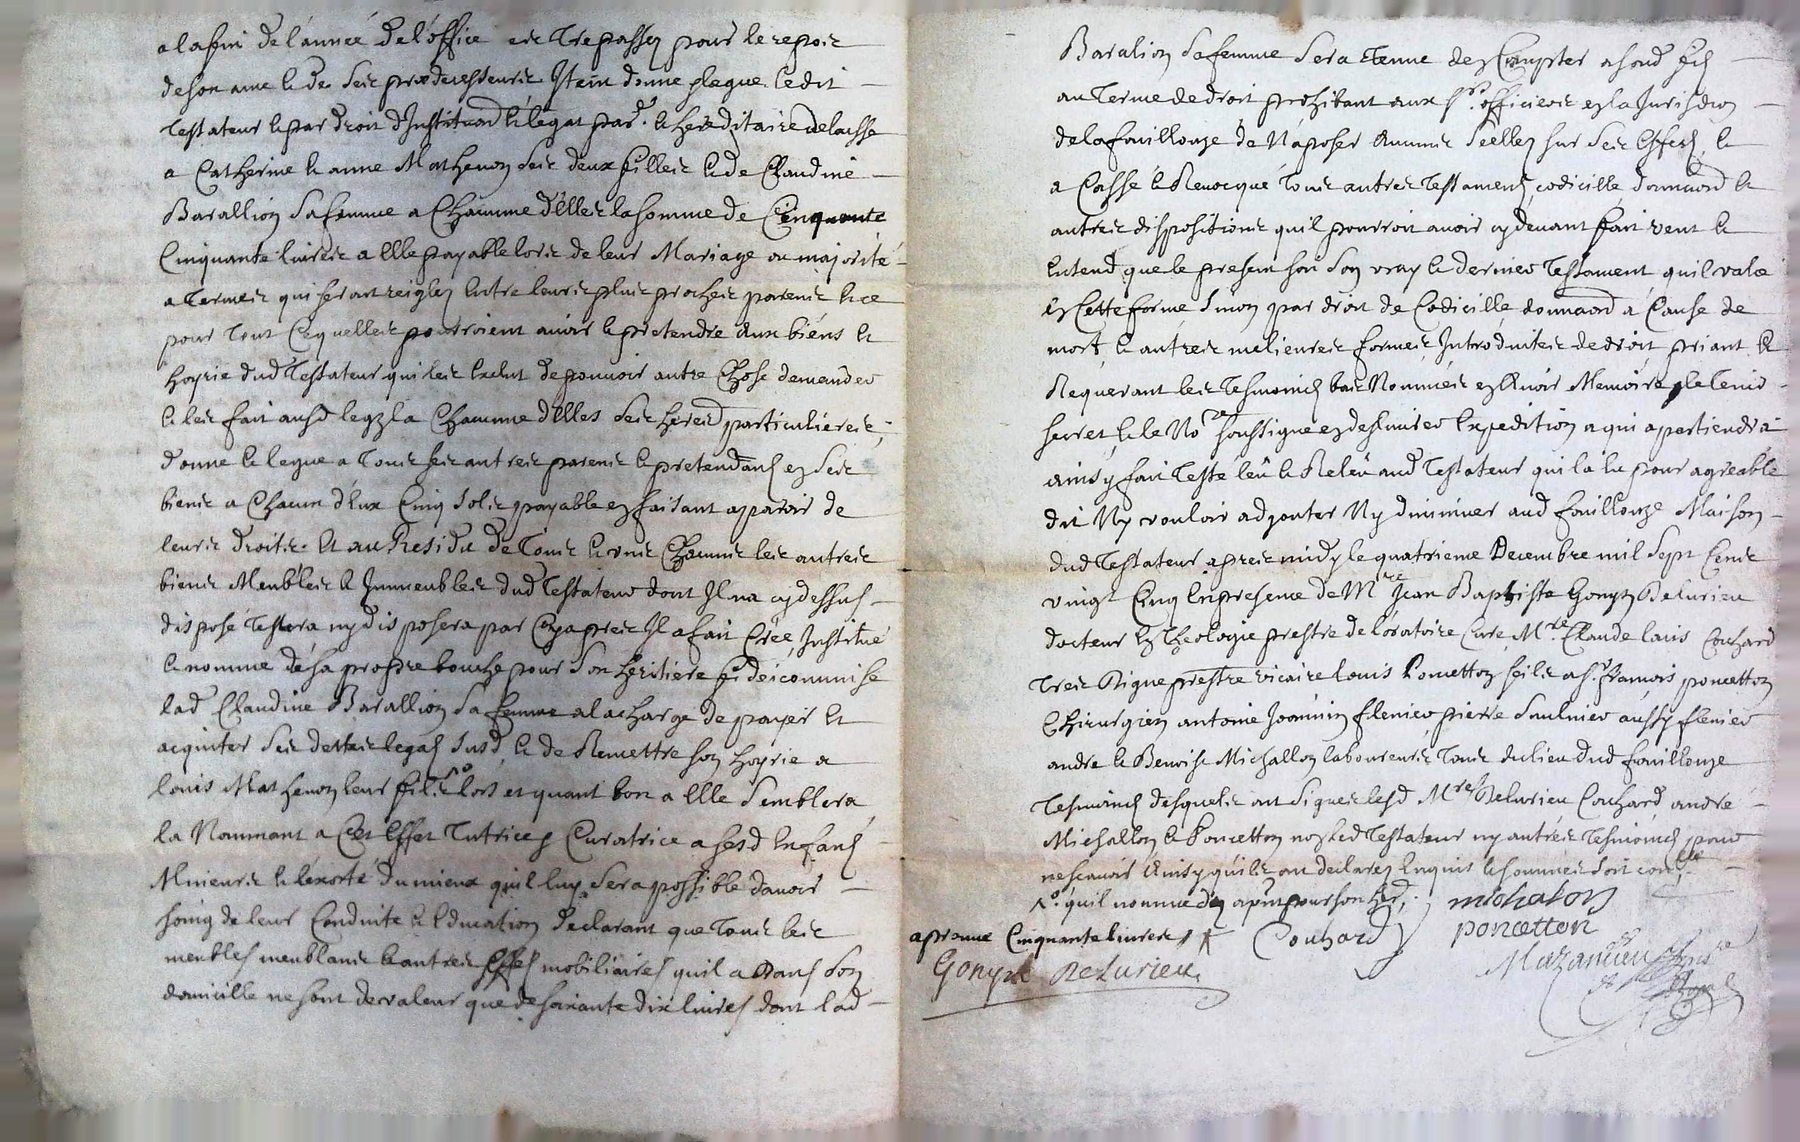 a la fin de l'année de l'office des trepassez pour le repoz
de son ame & de ses predecesseurs. Item donne & legue ledit
testateur & par droit d'Institution & legat par. & hereditaire delaisse
a Catherine & anne Mathevon ses deux filles & de Claudine
Barallion sa femme a Chacune d'elles la somme de Cinquante
Cinquante livres a elle payable lors de leur Mariage ou majorité
a Termes qui seront reiglez entre leurs plus proches parens & ce
pour tout Ce quelles pourroient avoir & pretendre aux biéns &
hoyrie dud Testateur qui les exclut de pouvoir autre Chose demander
& les fait aud legz la Chacune d'elles ses heres particulieres
donne & legue a tous ses autres parens & pretendans en ses
biens a Chacun d'eux Cinq sols payable en faisant aparoir de
leurs droits. Et au Residu de Tous & uns Chacuns les autres
biens Meubles & Immeubles dud Testateur dont Il na cy dessus
disposé testera ny disposera par Cy apres Il a fait Créé, Institué
& nommé de sa propre bouche pour son heritiere fideicommise
lad Claudine Barallion sa femme a la charge de payer &
acquiter ses dettes legas susd & de Remettre son hoyrie a
louis Mathevon leur fils lors et quant bon a elle semblera
la Nommant a Cet Effet Tutrice & Curatrice a sesd enfans
Mineurs & l'exorte du mieux quil luy sera possible d'avoir
soing de leur Conduite & Education Declarant que Tous les
meubles meublans & autres effes mobiliaires quil a Dans son
domicille ne sont de valeur que de soixante dix livres dont lad
Baralion sa femme sera tenue de Compter a sond fils
au Terme de droit prohibant aux srs officiers en la Jurisdion
de la fouillouze de N'aposer Aucuns seellez sur ses effets, &
a Cassé & Revocqué tous autres testamens codicille donnaond &
autres dispositions quil pourroit avoir cy devant fait veut &
entend que le present soit son vray & dernier Testament quil valé
en Cette forme sinon par droit de Codicille donnaond a Cause de
mort & autres melieures formes Introduites de droit priant &
Requerant les Tesmoins bas Nommés en Avoir Memoire, & le tenir
secret & le No.re soussigné en deslivrer Expedition a qui apartiendra
ainsy fait Teste leu & Releu aud Testateur qui la lu pour agreable
dit N'y vouloir adjouter Ny diminuer aud fouillouze Maison
dud Testateur apres midy le quatrieme Decembre mil Sept Cens
vingt Cinq En presence de Mre Jean Baptiste Gonyn Delurieu
docteur En Theologie prestre de l'oratoire Curé, Mre Claude louis Couhard
prestre vicaire louis Poncetton fils a sr. francois poncetton
Chirurgien antoine Joannin pierre Saulnier aussy
andre & Benoist Michallon laboureurs tous du lieu dud fouillouze
Tesmoins desquels ont signer lesd Mres Delurieu Couhard andré
Michallon & Poncetton non led Testateur ny autres Tesmoins pour
ne scavoir Ainsy quils ont declarez Enquis & sommes soit con.lle
quil nomme pour son her.
michalon
aprouvé Cinquante livres
Couhard
poncetton
Gonyn Delurieu